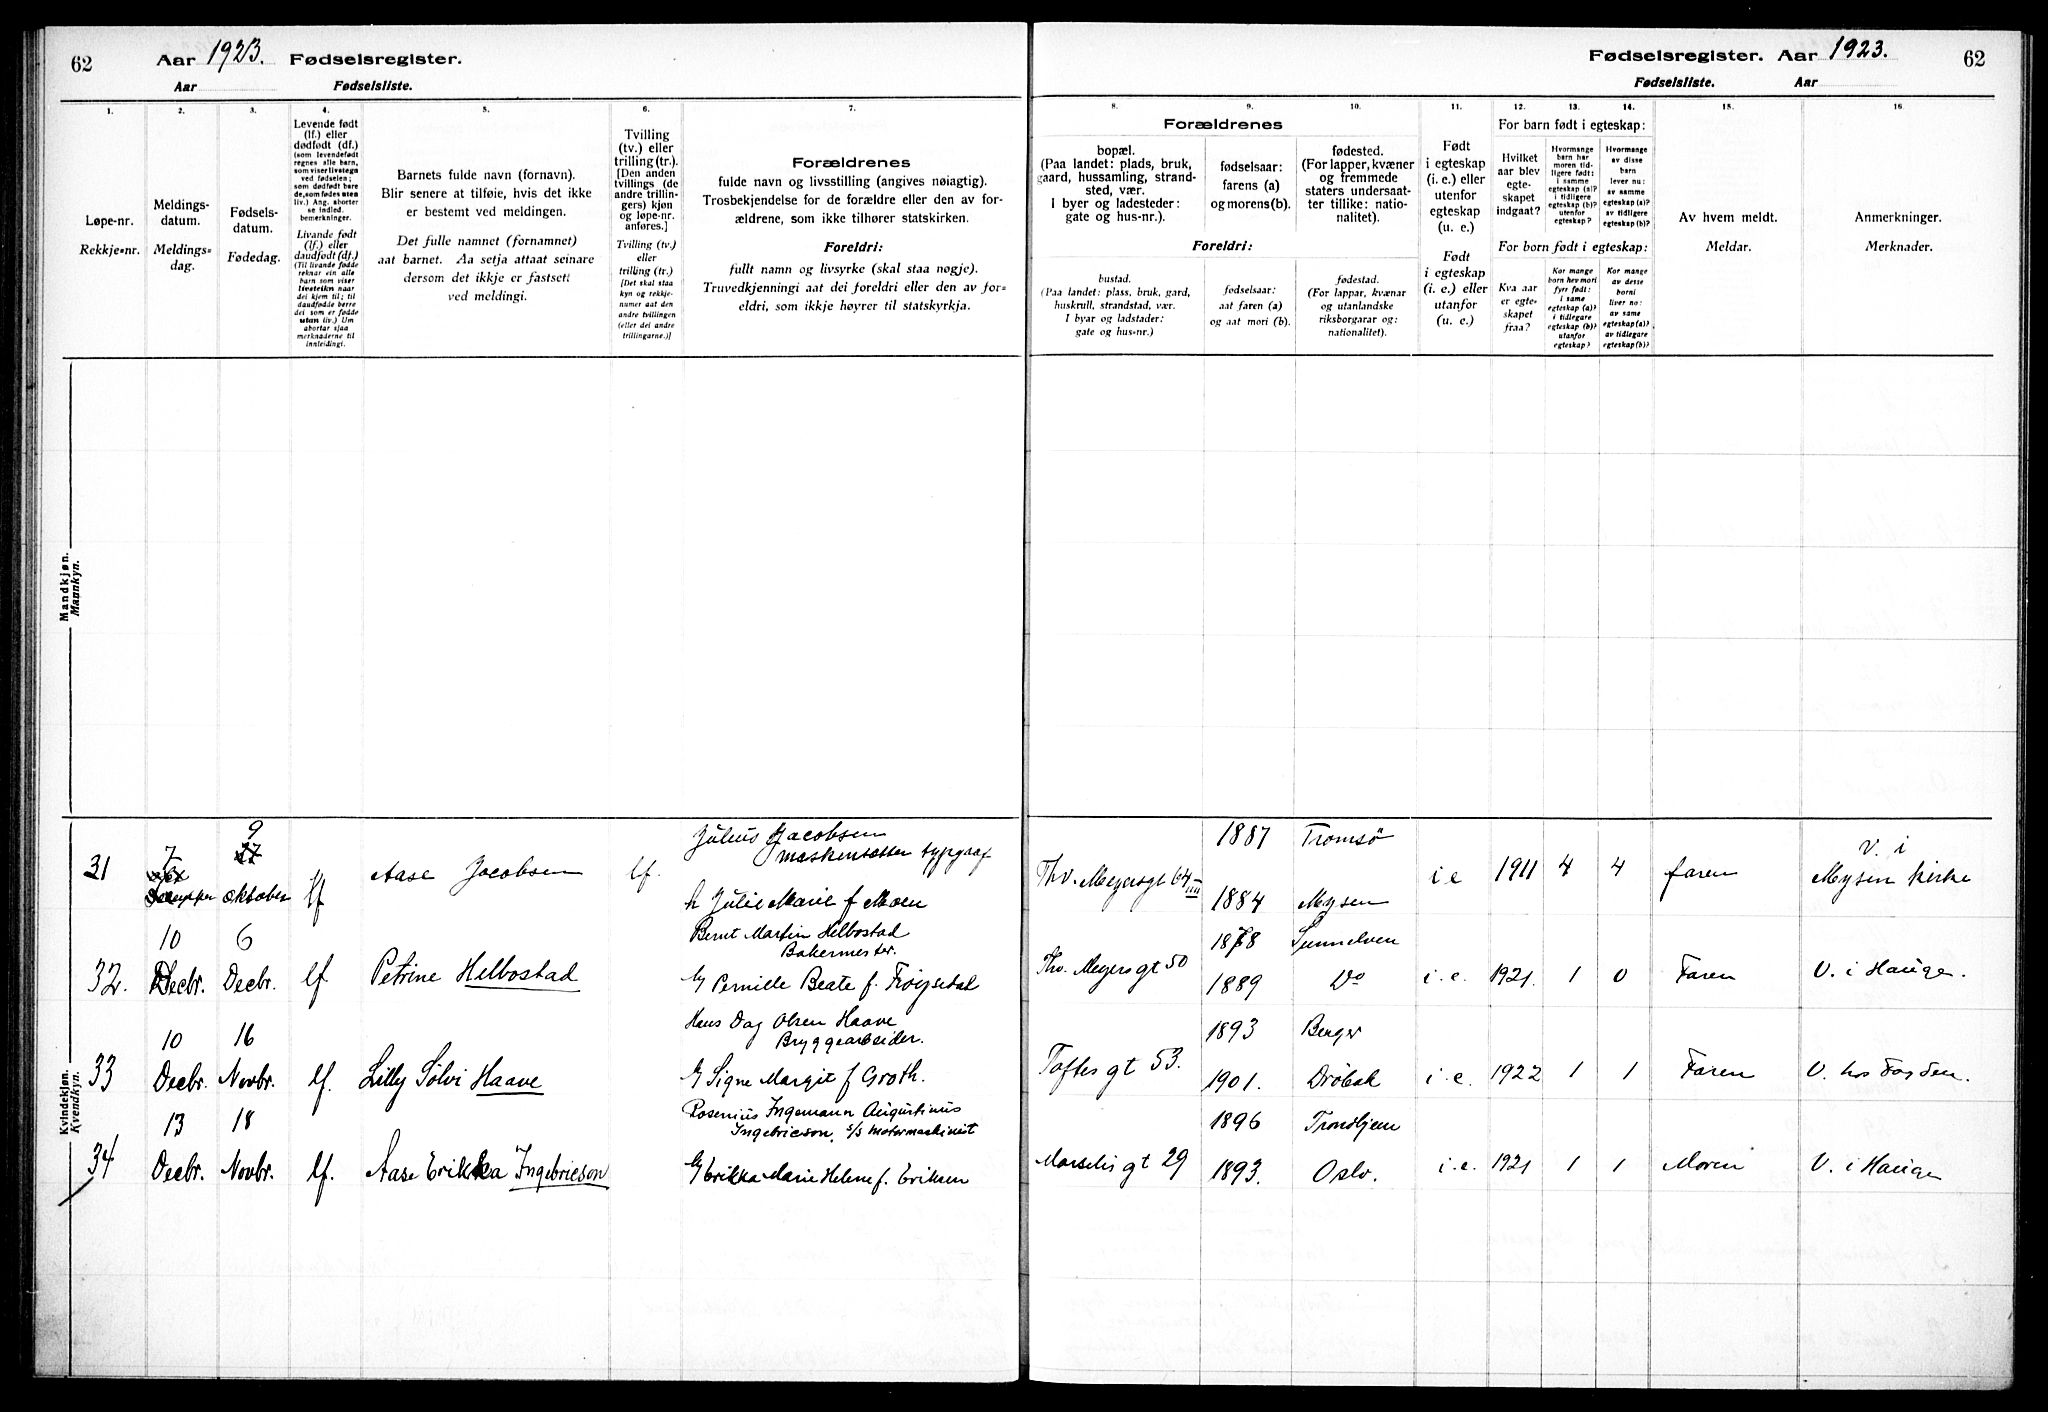 62
Aar 1923. Fødselsregister.
Aar Fødselsliste.
Fødselsregister. Aar 1923.
62
Fødselsliste. Aar
1.
Løpe-nr.
Rekkje=nr.
2.
Meldings-
datum.
Meldings=
dag.
3.
Fødsels-
datum.
Fødedag.
4.
Levende født
(lf.) eller
dødfødt (df.)
(som levendefødt
regnes alle barn,
som viser livstegn
ved fødselen;
som dødfødt bare
de, som fødes uten
liv.) Ang. aborter
se indled.
bemerkninger.
Livande født
(lf.) eller
daudfødt (df.)
(Til livande fødde
reknar ein alle
barn som viser
livsteikn naar
dei kjem til; til
daudfødde berre
dei som er fødde
utan liv.) Um
abortar sjaa
merknaderne til
innleidingi.
5.
Barnets fulde navn (fornavn).
Blir senere at tilføie, hvis det ikke
er bestemt ved meldingen.
Det fulle namnet (fornamnet)
aat barnet. Aa setja attaat seinare
dersom det ikkje er fastsett
ved meldingi.
6.
Tvilling
(tv.) eller
trilling (tr.)
[Den anden
tvillings (de
andre trillin-
gers) kjøn
og løpe-nr.
anføres.]
Tvilling (tv.)
eller
trilling (tr.)
[Det skal staa
kyn og rekkje-
numer aat den
andre tvillingen
(eller dei andre
trillingarne.)]
7.
Forældrenes
fulde navn og livsstilling (angives nøiagtig).
Trosbekjendelse for de forældre eller den av for-
ældrene, som ikke tilhører statskirken.
Foreldri:
fullt namn og livsyrke (skal staa nøgje).
Truvedkjenningi aat dei foreldri eller den av for=
eldri, som ikkje høyrer til statskyrkja.
Forældrenes
8.
bopæl.
(Paa landet: plads, bruk,
gaard, hussamling, strand-
sted, vær.
I byer og ladesteder:
gate og hus-nr.).
9.
fødselsaar:
farens (a)
og morens (b).
10.
fødested.
(For lapper, kvæner
og fremmede
staters undersaat-
ter tillike: natio-
nalitet).
Foreldri:
bustad.
(Paa landet: plass, bruk, gard,
huskrull, strandstad, vær.
I byar og ladstader:
gate og hus-nr.)
fødselsaar:
aat faren (a)
og aat mori (b).
fødestad.
(For lappar, kvænar
og utanlandske
riksborgarar og:
nationalitet).
11.
Født
i egteskap
(i. e.) eller
utenfor
egteskap
(u. e.)
Født
i egteskap
(i. e.) eller
utanfor
(u. e.)
For barn født i egteskap:
12.
Hvilket
aar blev
egte-
skapet
indgaat?
13.
Hvormange
barn har
moren tid-
ligere født:
i samme
egteskap (a)?
i tidligere
egteskap (b)?
utenfor
egteskap?
14.
Hvormange
av disse
barn
lever nu:
av samme
egteskap (a)?
av tidligere
egteskap (b)?
For born født i egteskap:
Kva aar
er egte-
skapet
fraa?
Kor mange
born hev mori
fyrr født:
i same
egteskap (a)?
i tidlegare
egteskap (b)?
utanfor
egteskap?
Kor mange
av desse
borni
liver no:
av same
egteskap (a)?
av tidlegare
egteskap (b)?
15.
Av hvem meldt.
Meldar.
16.
Anmerkninger.
Merknader.
Mandkjøn.
Mannkyn.
Kvindekjøn.
Kvendkyn.
31 7 9 oktober lf Aase Jacobsen lf. Julius Jacobsen
maskinsætter typograf
h Julie Marie f Moen
Thv. Meyersgt 64 III 1887 Tromsø
1884 Mysen i e 1911 4 4 faren V. i
Mysen kirke
32. 10 Decbr. 6 Decbr. lf Petrine Helbostad Bernt Martin Helbostad
Bakermester.
Og Pernille Beate f. Frøysedal
Thv. Meyersgt 50 1878 Sunnelven
1889 Do i. e. 1921. 1 0 Faren V. i Hauge.
33 10 Decbr. 16 Novbr. lf. Lilly Sølvi Haave Hans Dag Olsen Haave
Bryggearbeider.
Og Signe Margit f Groth.
Toftesgt 53. 1893 Berger
1901. Drøbak i. e. 1922 1 1 Faren V. hos
34 13 Decbr. 18 Novbr. lf. Aase Erikka Ingebricson Rosenius Ingemann Augustinus
Ingebricson, s/s motormaskinist
Og Erikka Marie Helene f. Eriksen
Marselisgt 29 1896 Trondhjem
1893. Oslo. i. e. 1921 1 1 Moren V. i Hauge